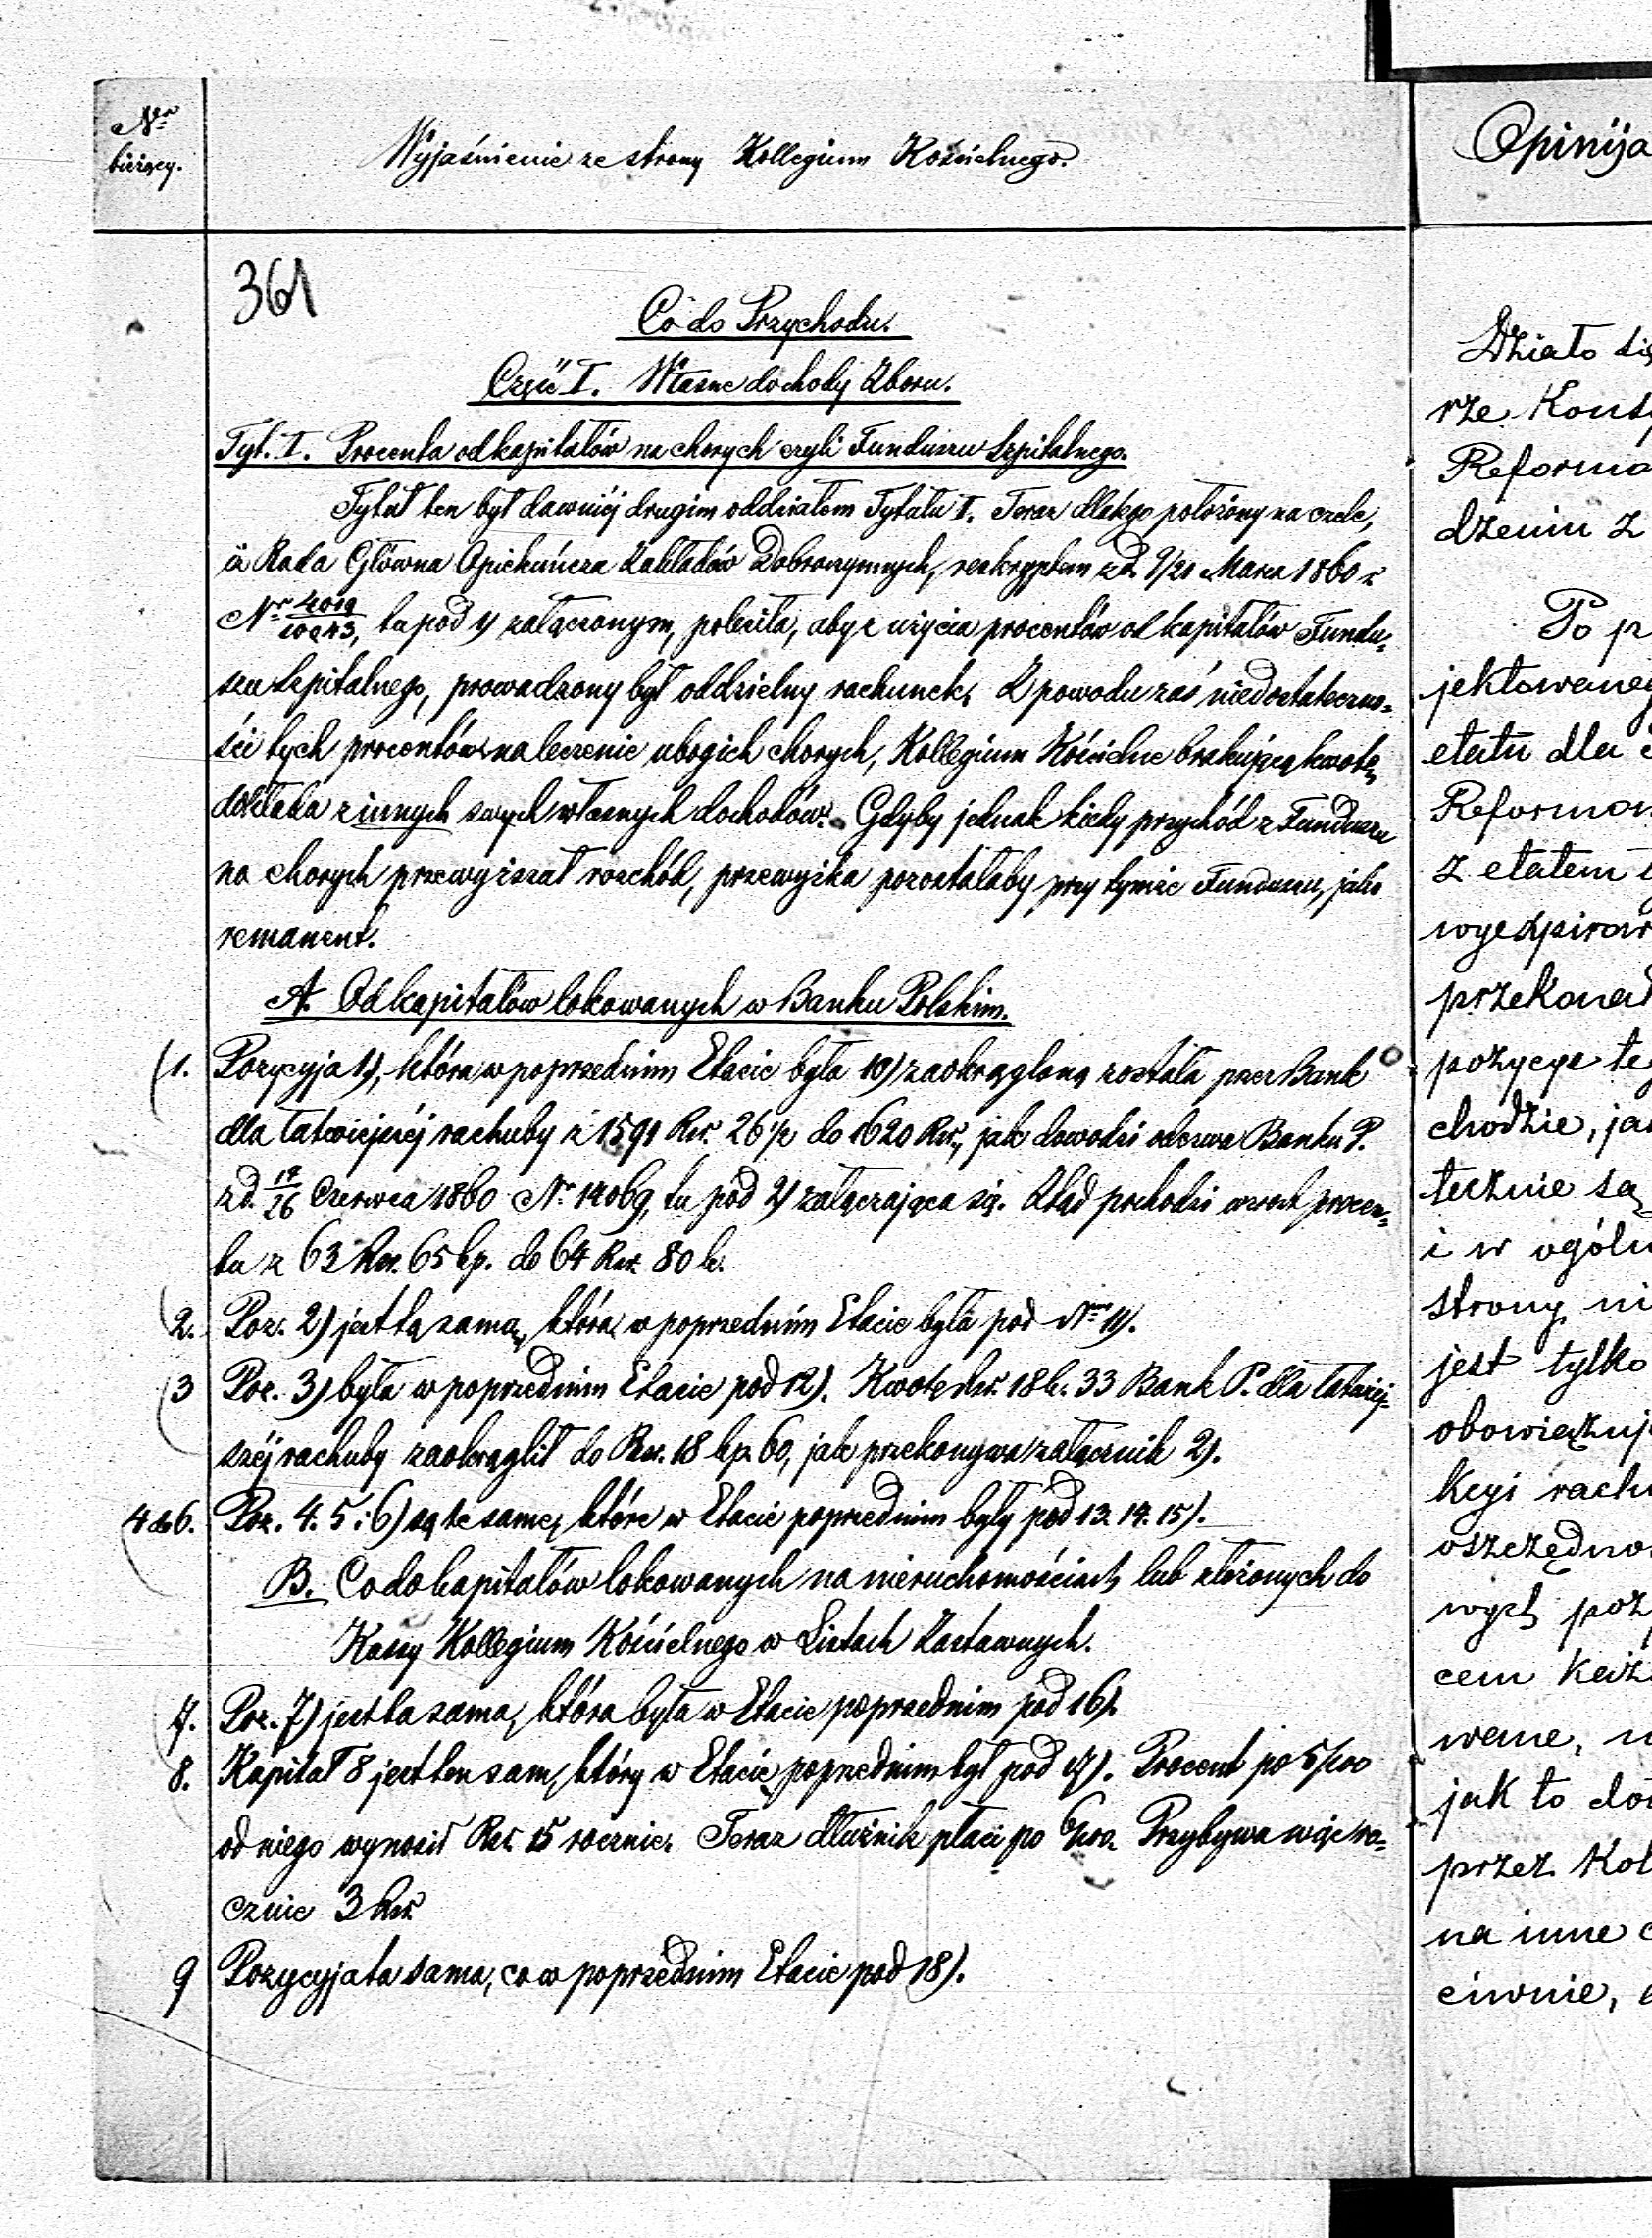 Nr bieżący.
Wyjaśnienie ze strony Kollegium Kościelnego.
361
Co do Przychodu.
Część I. Własne dochody Zboru.
Tyt. I. Procenta od kapitałów na chorych czyli Funduszu Szpitalnego.
Tytuł ten był dawniéj drugim oddziałem Tytułu I. Teraz dlatego położony na czele,
iż Rada Główna Opiekuńcza Zakładów Dobroczynnych, reskryptem z d. 9/21 Marca 1860 r.
Nr 4019/10243, tu pod 1) załączonym, poleciła, aby z użycia procentów od kapitałów Fundu-
szu Szpitalnego, prowadzony był oddzielny rachunek. Z powodu zaś niedostateczno-
ści tych procentów na leczenie ubogich chorych, Kollegium Kościelne brakującą kwotę
dokłada z innych swych własnych dochodów. Gdyby jednak kiedy przychód z Funduszu
na chorych przewyższał rozchód, przewyżka pozostałaby przy tymże Funduszu, jako
remanent.
A. Od kapitałów lokowanych w Banku Polskim.
1. Pozycyja 1), która w poprzednim Etacie była 10) zaokrągloną została przez Bank
dla łatwiejszéj rachuby z 1591 Rsr. 26 1/2 do 1620 Rsr., jak dowodzi odezwa Banku P.
z d. 14/26 Czerwca 1860 Nr 14069, tu pod 2) załączająca się. Ztąd pochodzi wzrost procen-
tu z 63 Rsr. 65 kp. do 64 Rsr. 80 k.
2. Poz. 2) jest tą samą, która w poprzednim Etacie była pod Nrm 11).
3 Poz. 3) była w poprzednim Etacie pod 12). Kwotę Rsr. 18 k. 33 Bank P. dla łatwiej-
széj rachuby zaokrąglił do Rsr. 18 kp. 60, jak przekonywa załącznik 2).
4 do 6. Poz. 4. 5 i 6) są te same, które w Etacie poprzednim były pod 13. 14. 15).
B. Co do kapitałów lokowanych na nieruchomościach lub złożonych do
Kassy Kollegium Kościelnego w Listach Zastawnych.
7. Poz. 7) jest ta sama, która była w Etacie poprzednim pod 16).
8. Kapitał 8 jest ten sam, który w Etacie poprzednim był pod 17). Procent po 5/100
od niego wynosił Rsr. 15 rocznie. Teraz dłużnik płaci po 6/100. Przybywa więc ro-
cznie 3 Rsr.
9 Pozycyja ta sama, co w poprzednim Etacie pod 18).
Opinija
Działo się
rze Kons
Reforma
dzeniu z
Po p
jektowaneg
etatu dla
Reformow
z etatem
przekonad
pozycye te
chodzie, ja
tecznie są
i w ogóln
strony, ni
jest tylko
obowiązuj
kcyi rach
oszczędno
wych poz
cem każ
wane, n
jak to do
przez Kol
na inne
ciwnie,